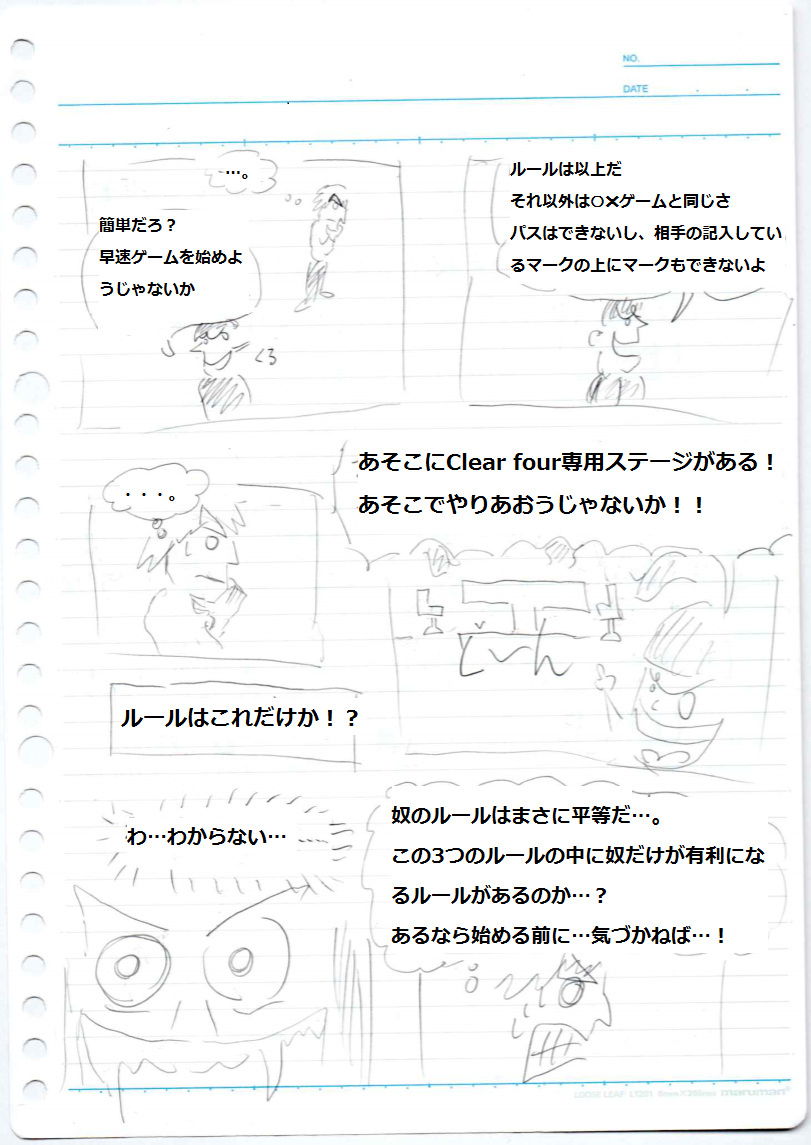 NO.
DATE
ルールは以上だ
それ以外は○×ゲームと同じさ
パスはできないし、相手の記入してい
るマークの上にマークもできないよ
…。
簡単だろ？
早速ゲームを始めよ
うじゃないか
くる
あそこにClear four専用ステージがある！
あそこでやりあおうじゃないか！！
どーん
・・・。
ルールはこれだけか！？
奴のルールはまさに平等だ…。
この3つのルールの中に奴だけが有利にな
るルールがあるのか…？
あるなら始める前に…気づかねば…！
わ…わからない…
LOOSE LEAF L1201 6mm×296mm maruman